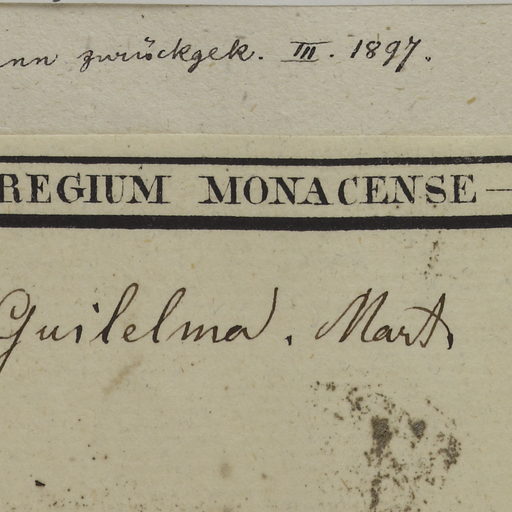 ann zurückgek. III. 1897.
REGIUM MONACENSE
Guilelma. Mart.